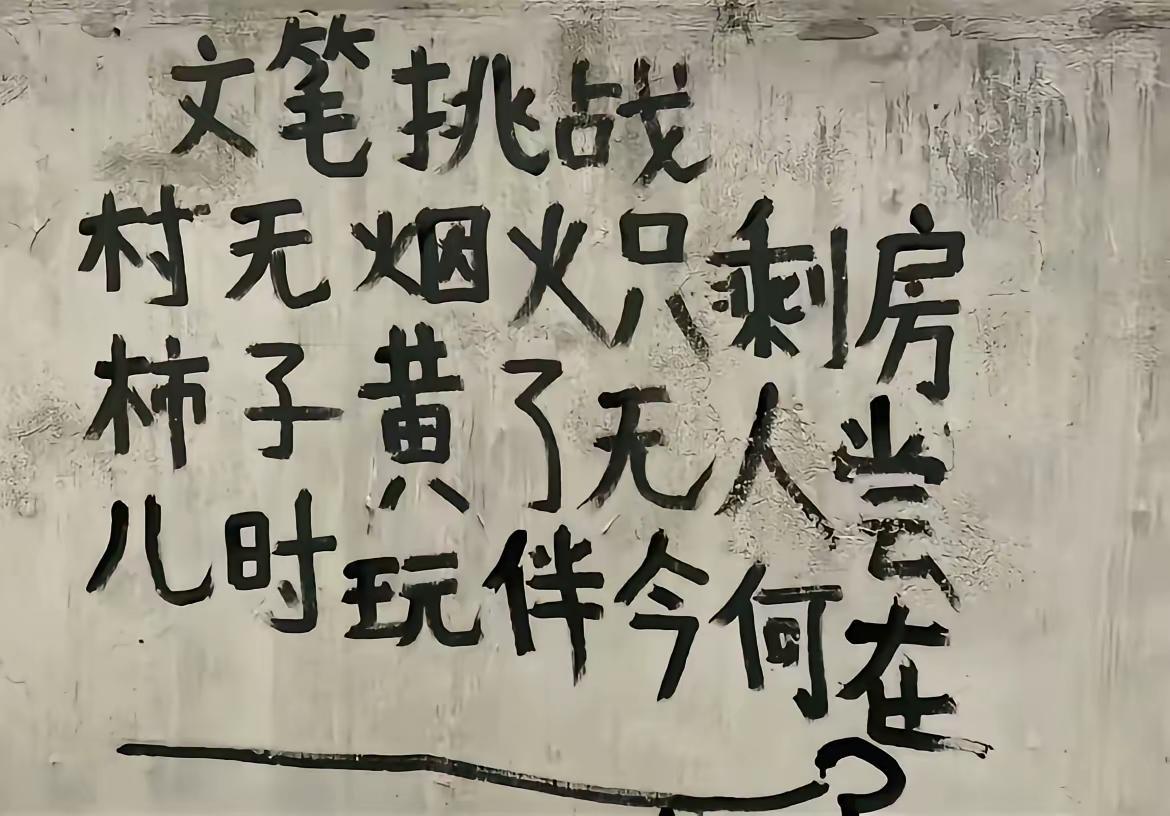 文笔挑战
村无烟火只剩房
柿子黄了无人尝
儿时玩伴今何在
?